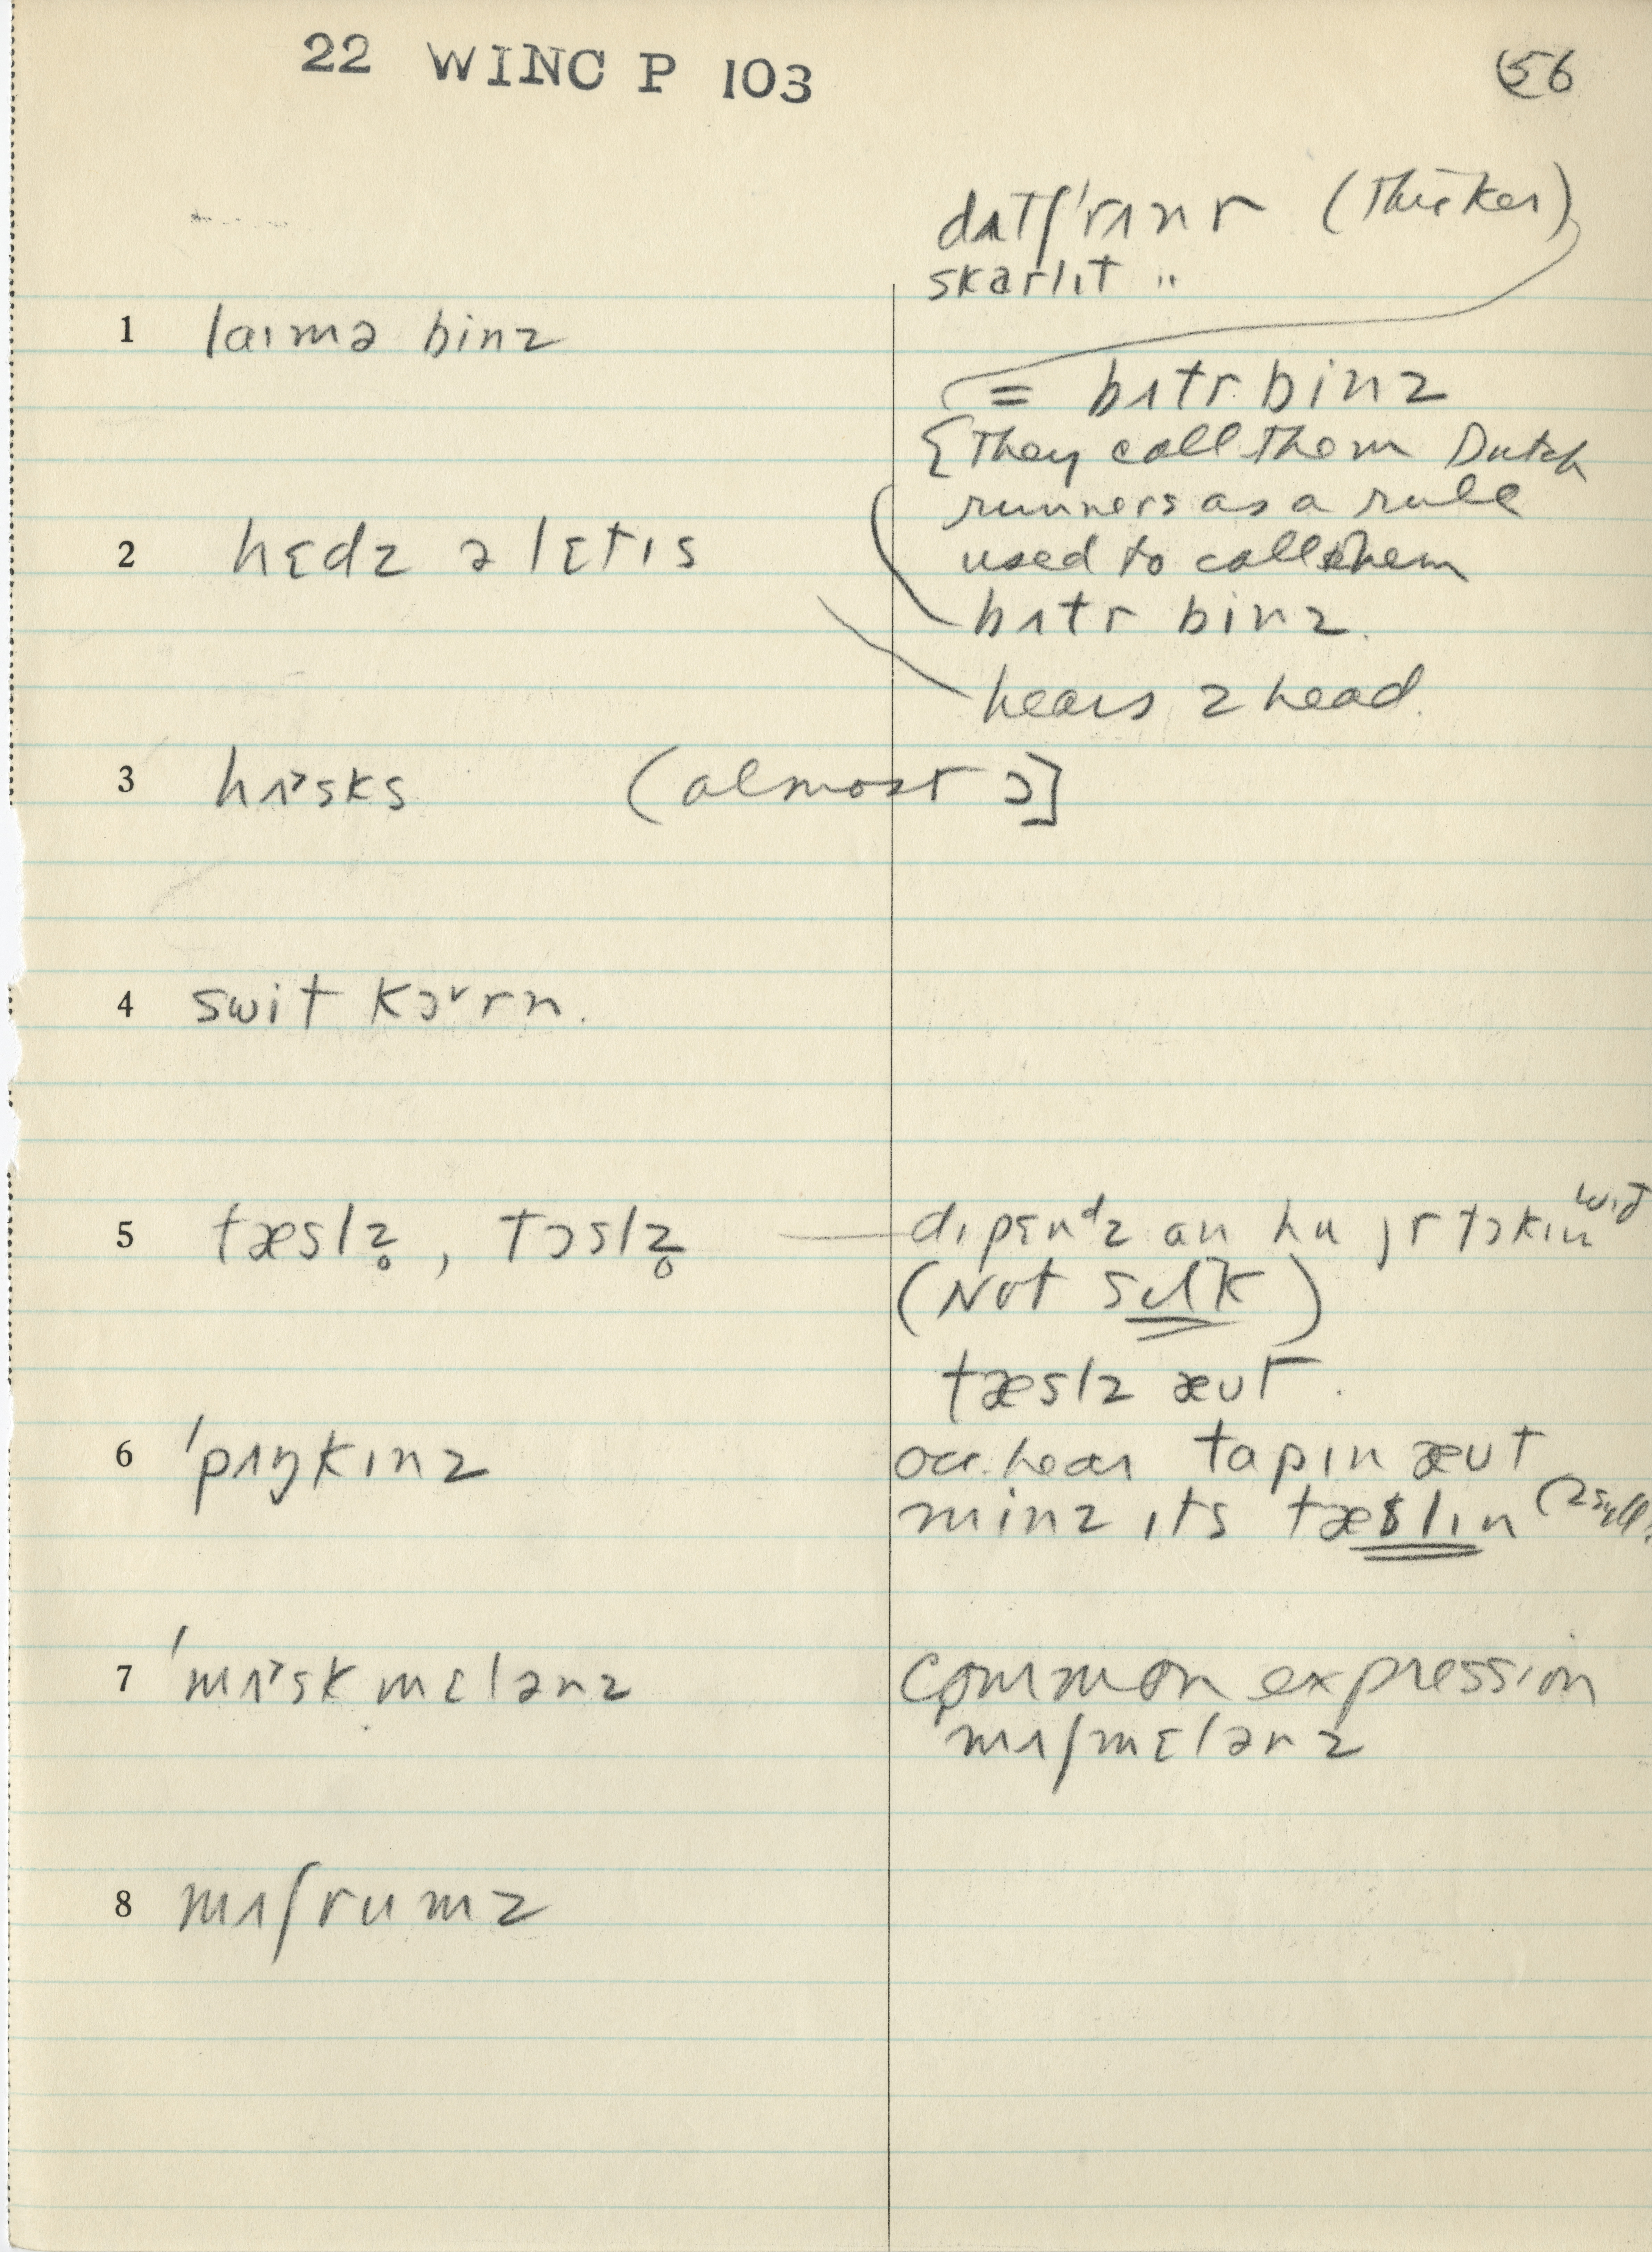 22 WINC P 103
56
dʌtʃ'rʌnr (thicker)
skarlɪt "
1 laɪmə binz
= bʌtr binz
{They call them Dutch
runners as a rule
used to call them
bʌtr binz.
2 hɛdz ə lɛtɪs
hears 2 head.
3 hʌ˃sks (almost ɔ]
4 swit kɔ˅rn.
5 tæslz̥, tɔslz̥
dɪpɛnᵈz an hu jr tɔkɪn wɪð
(Not sɪlk)
tæslz æʊt.
6 'pʌŋkɪnz
occ. hear tapɪn æʊt
minz ɪts tæslɪn (2 syll.
7 'mʌ˃sk mɛlənz
Common expression
'mʌʃmɛlənz
8 mʌʃrumz